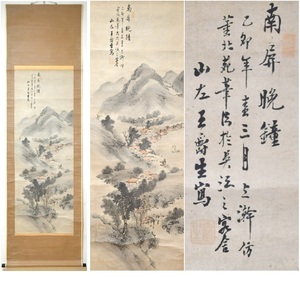 南屏晚鐘
乙卯年春三月上澣仿
董北苑筆法於吳江之客舍
山左王爵生寫